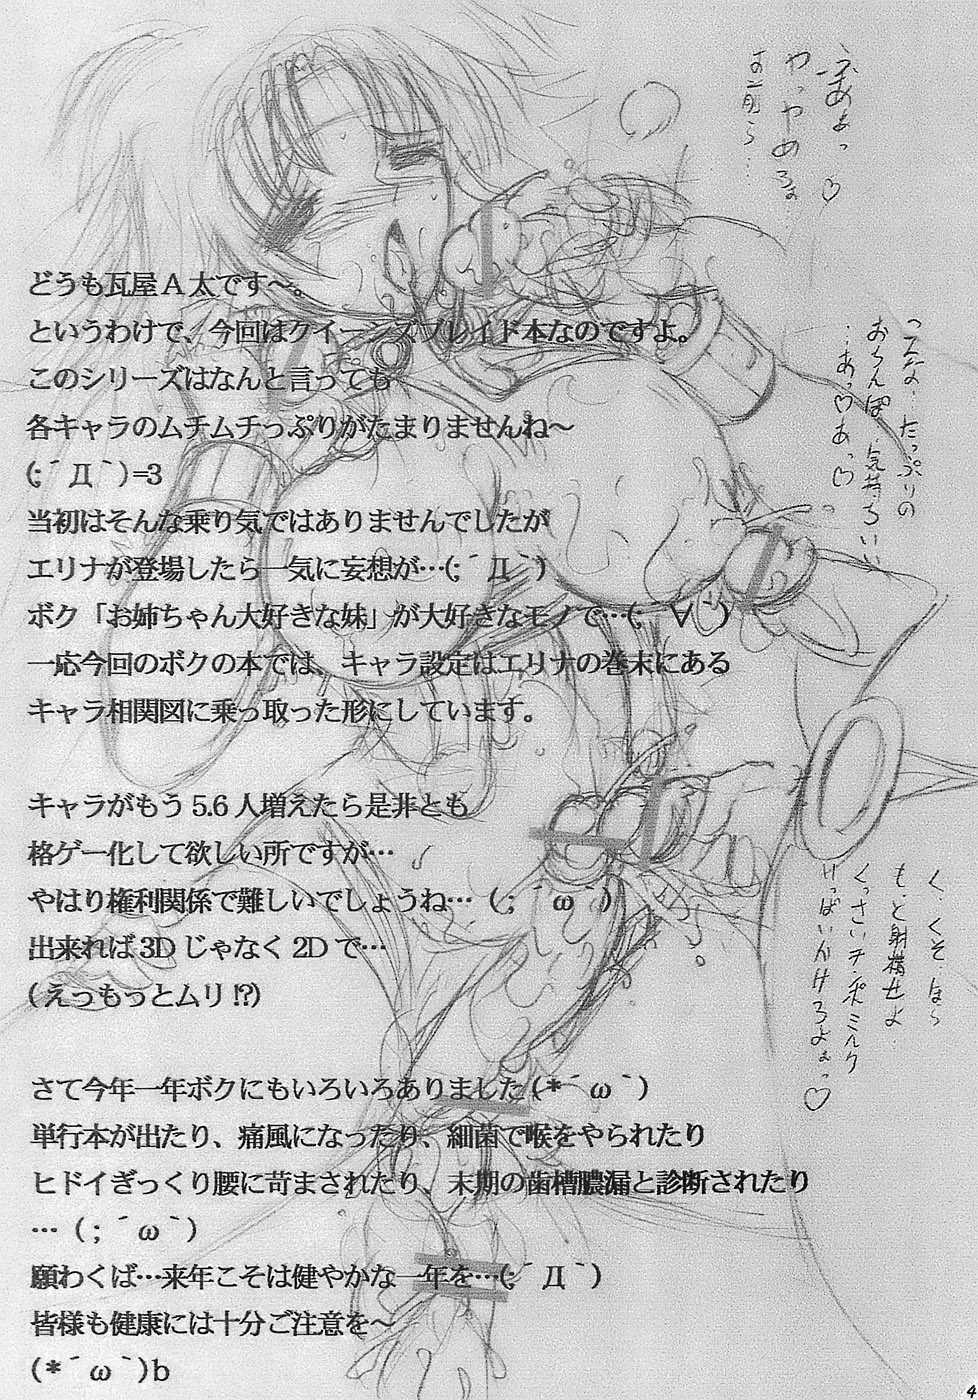 どうも瓦屋A太です～。
というわけで、今回はクイーンズブレイド本なのですよ。
このシリーズはなんと言っても
各キャラのムチムチっぷりがたまりませんね～
(;´Д｀)=3
当初はそんな乗り気ではありませんでしたが
エリナが登場したら一気に妄想が…(;´Д｀)
ボク「お姉ちゃん大好きな妹」が大好きなモノで…(;´∀｀)
一応今回のボクの本では、キャラ設定はエリナの巻末にある
キャラ相関図に乗っ取った形にしています。
キャラがもう5.6人増えたら是非とも
格ゲー化して欲しい所ですが…
やはり権利関係で難しいでしょうね…（；´ω｀）
出来れば3Dじゃなく2Dで…
(えっもっとムリ!?)
さて今年一年ボクにもいろいろありました(*´ω｀)
単行本が出たり、痛風になったり、細菌で喉をやられたり
ヒドイぎっくり腰に苛まされたり、末期の歯槽膿漏と診断されたり
…（；´ω｀）
願わくば…来年こそは健やかな一年を…(;´Д｀)
皆様も健康には十分ご注意を～
(*´ω｀)b
やっやめろぉ
こんな、たっぷりの
おちんぽ、気持ちいい
…あっ♡あっ♡
く、くそ、ほら
もっと射精せよ
くっさいチンポミルク
いっぱいかけろよぉっ♡
4